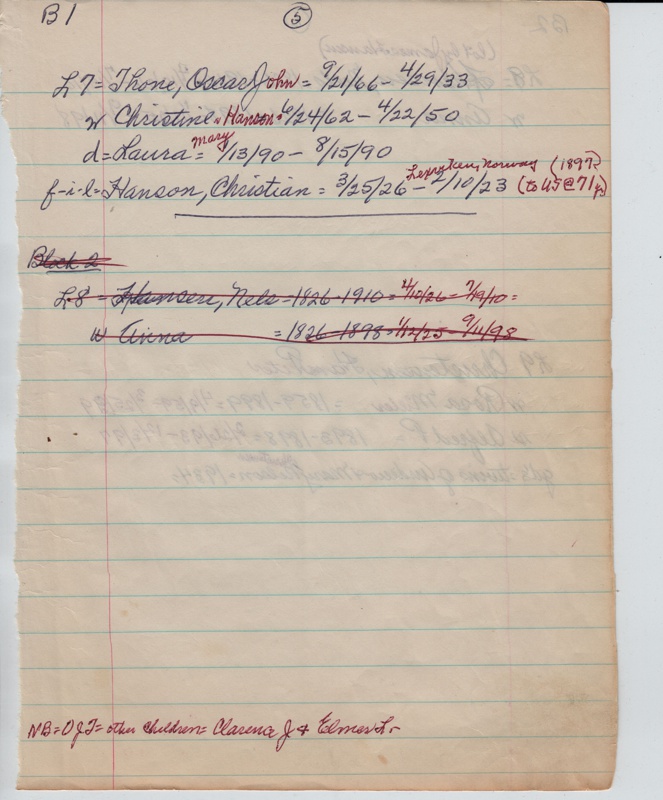 B1 5
L7 = Thone, Oscar John = 9/21/66 - 4/29/33
w Christine = Hanson = 6/24/62 - 4/22/50
mary
d = Laura = 1/13/90 - 8/15/90
Norway (1897)
f-i-l = Hanson, Christian = 3/25/26 - 2/10/23 (to US @ 71 yr)
Block 2
L8 = Hansen, Nels = 1826-1910 = 4/10/26 = 7/19/10 =
w Anna = 1826-1898 = 1/12/25 9/11/98
NB = OJT = other children = Clarence J + Elmer L.